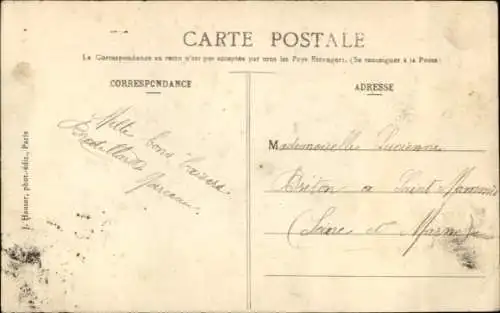 CARTE POSTALE
La Correspondance au recto n'est pas acceptée par tous les Pays Etrangers. (Se renseigner à la Poste)
CORRESPONDANCE
ADRESSE
Mille bons baisers
Mademoiselle Lucienne
Briton à Saint Mammès
(Seine et Marne)
J. Hauser, phot.-édit., Paris